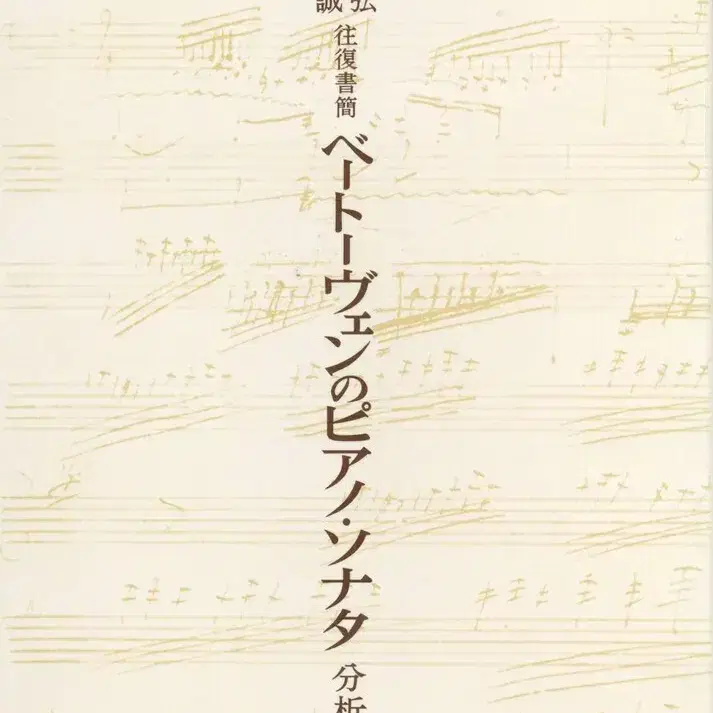 弘
誠
往復書簡
ベートーヴェンのピアノ・ソナタ
分析